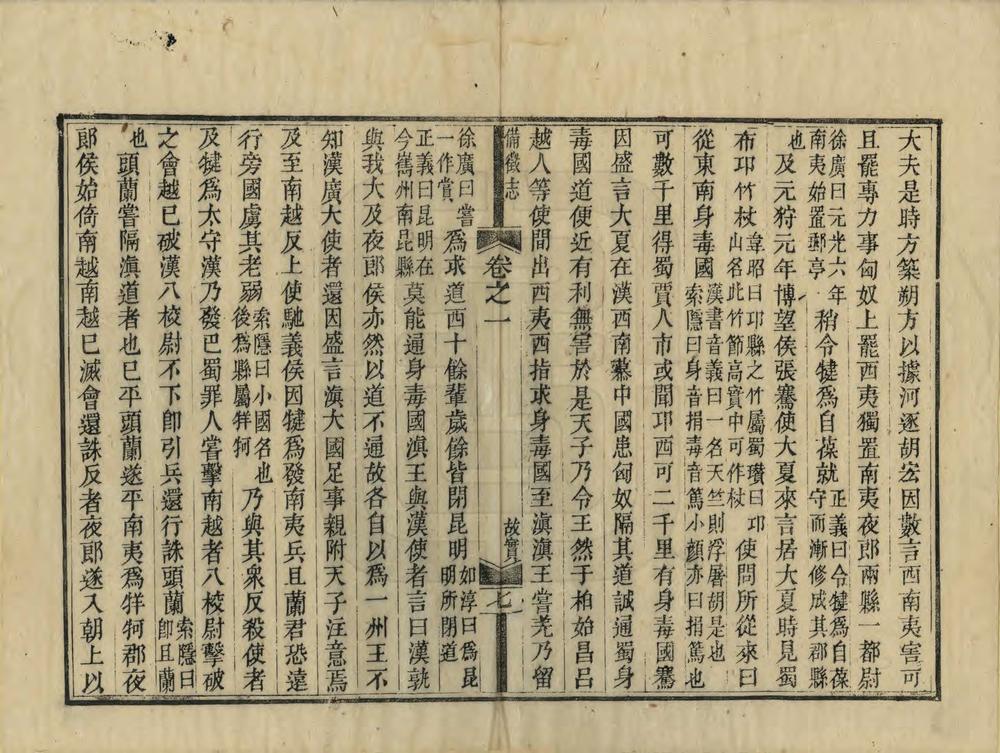 大夫是時方築朔方以據河逐胡宏因數言西南夷害可
且罷專力事匈奴上罷西夷獨置南夷夜郎兩縣一都尉
徐廣曰元光六年南夷始置郵亭
稍令犍爲自葆就
正義曰令犍爲自葆守而漸修成其郡縣也
及元狩元年博望侯張騫使大夏來言居大夏時見蜀
布邛竹杖
韋昭曰邛縣之竹屬蜀瓚曰邛山名此竹節高實中可作杖
使問所從來曰
從東南身毒國
索隱曰身音捐毒音篤小顏亦曰捐篤也漢書音義曰一名天竺則浮屠胡是也
可數千里得蜀賈人市或聞邛西可二千里有身毒國騫
因盛言大夏在漢西南慕中國患匈奴隔其道誠通蜀身
毒國道便近有利無害於是天子乃令王然于柏始昌呂
越人等使間出西夷西指求身毒國至滇滇王嘗羌乃留
備徵志
卷之一
故實
七
徐廣曰嘗一作賞
爲求道西十餘輩歲餘皆閉昆明
如淳曰爲昆明所閉道
正義曰昆明在今巂州南昆縣
莫能通身毒國滇王與漢使者言曰漢孰
與我大及夜郎侯亦然以道不通故各自以爲一州王不
知漢廣大使者還因盛言滇大國足事親附天子注意焉
及至南越反上使馳義侯因犍爲發南夷兵且蘭君恐遠
行旁國虜其老弱
索隱曰小國名也後爲縣屬牂牁
乃與其衆反殺使者
及犍爲太守漢乃發巴蜀罪人嘗擊南越者八校尉擊破
之會越已破漢八校尉不下卽引兵還行誅頭蘭
索隱曰卽且蘭也
頭蘭嘗隔滇道者也已平頭蘭遂平南夷爲牂牁郡夜
郎侯始倚南越南越已滅會還誅反者夜郎遂入朝上以